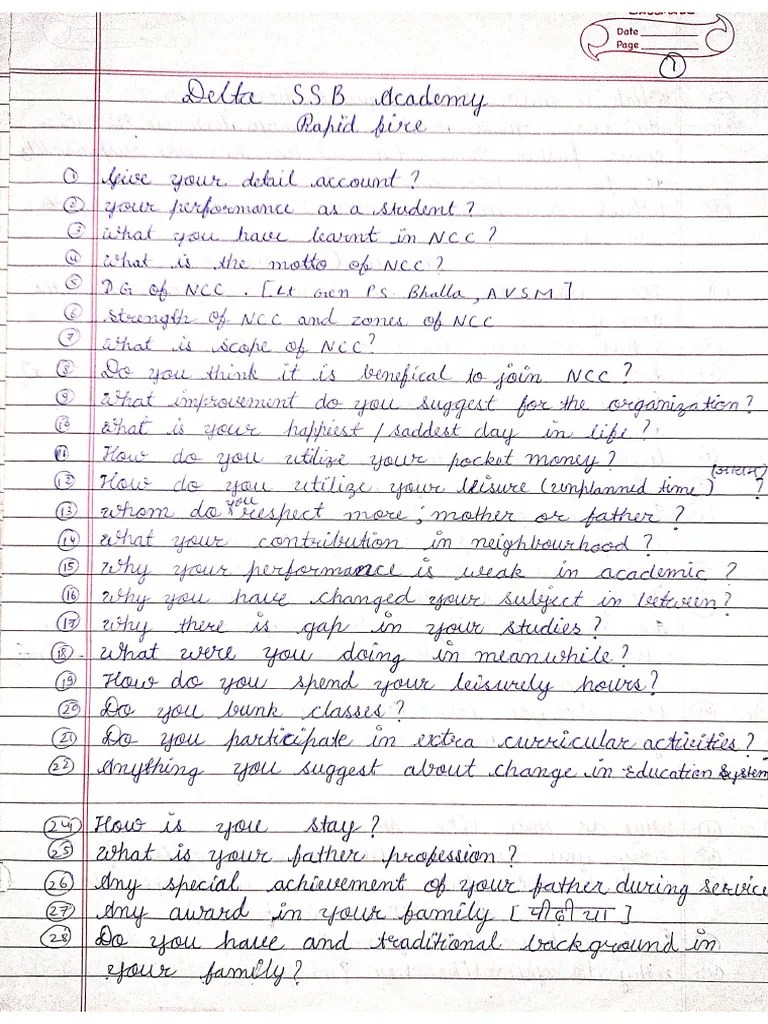 Date
Page
1
Delta SSB Academy
Rapid fire
① Give your detail account?
② your performance as a student?
③ what you have learnt in NCC?
④ what is the motto of NCC?
⑤ DG of NCC. [Lt Gen P.S Bhalla, AVSM]
⑥ strength of NCC and zones of NCC
⑦ what is scope of NCC?
⑧ Do you think it is benefical to join NCC?
⑨ what improvement do you suggest for the organization?
⑩ what is your happiest/saddest day in life?
⑪ How do you utilize your pocket money?
⑫ How do you utilize your leisure (unplanned time) (आराम) ?
⑬ whom do you respect more; mother or father?
⑭ what your contribution in neighbourhood?
⑮ why your performance is weak in academic?
⑯ why you have changed your subject in between?
⑰ why there is gap in your studies?
⑱ what were you doing in meanwhile?
⑲ How do you spend your leisurely hours?
⑳ Do you bunk classes?
㉑ Do you participate in extra curricular activities?
㉒ Anything you suggest about change in Education System
㉔ How is you stay?
㉕ what is your father profession?
㉖ Any special achievement of your father during service
㉗ Any award in your family [पीढ़ी या]
㉘ Do you have and traditional background in
your family?